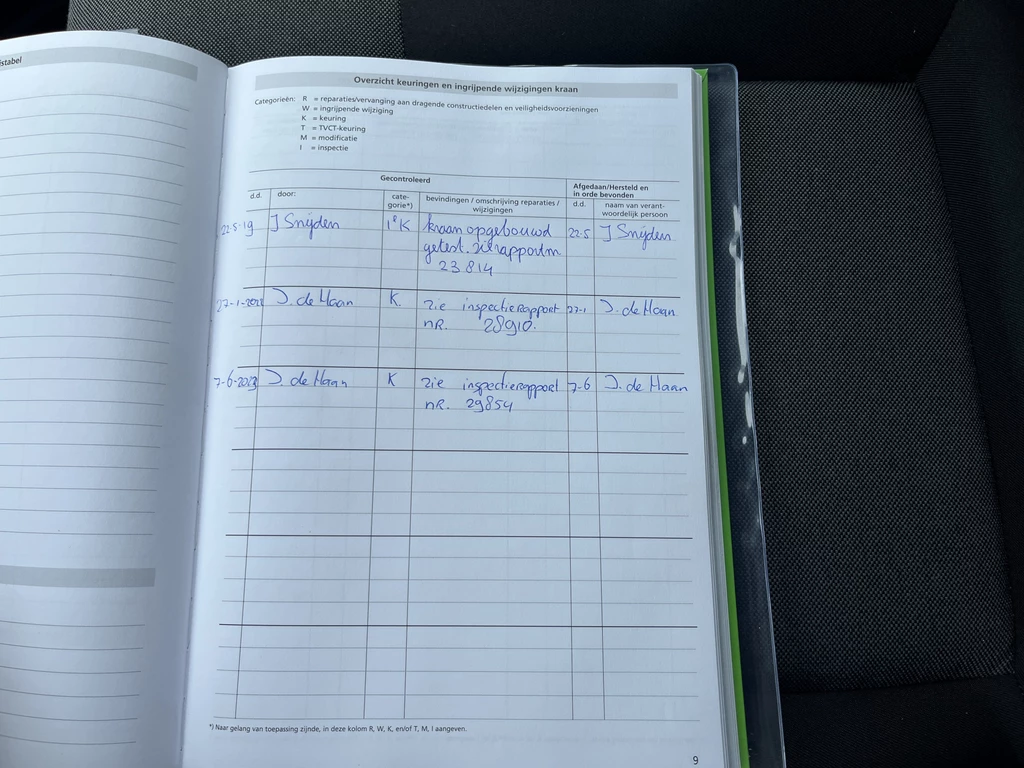 stabel
Overzicht keuringen en ingrijpende wijzigingen kraan
Categorieën: R = reparaties/vervanging aan dragende constructiedelen en veiligheidsvoorzieningen
W = ingrijpende wijziging
K = keuring
T = TVCT-keuring
M = modificatie
I = inspectie
Gecontroleerd
Afgedaan/Hersteld en
in orde bevonden
d.d. door: cate-
gorie*) bevindingen / omschrijving reparaties /
wijzigingen
d.d. naam van verant-
woordelijk persoon
22-5-19 J Snijden 1e K kraan opgebouwd 22-5 J Snijden
getest.
23814
27-1-2022 J. de Haan K. zie inspectierapport 27-1 J. de Haan
nR. 28910.
7-6-2023 J. de Haan K zie inspectierapport 7-6 J. de Haan
nR. 29854
*) Naar gelang van toepassing zijnde, in deze kolom R, W, K, en/of T, M, I aangeven.
9